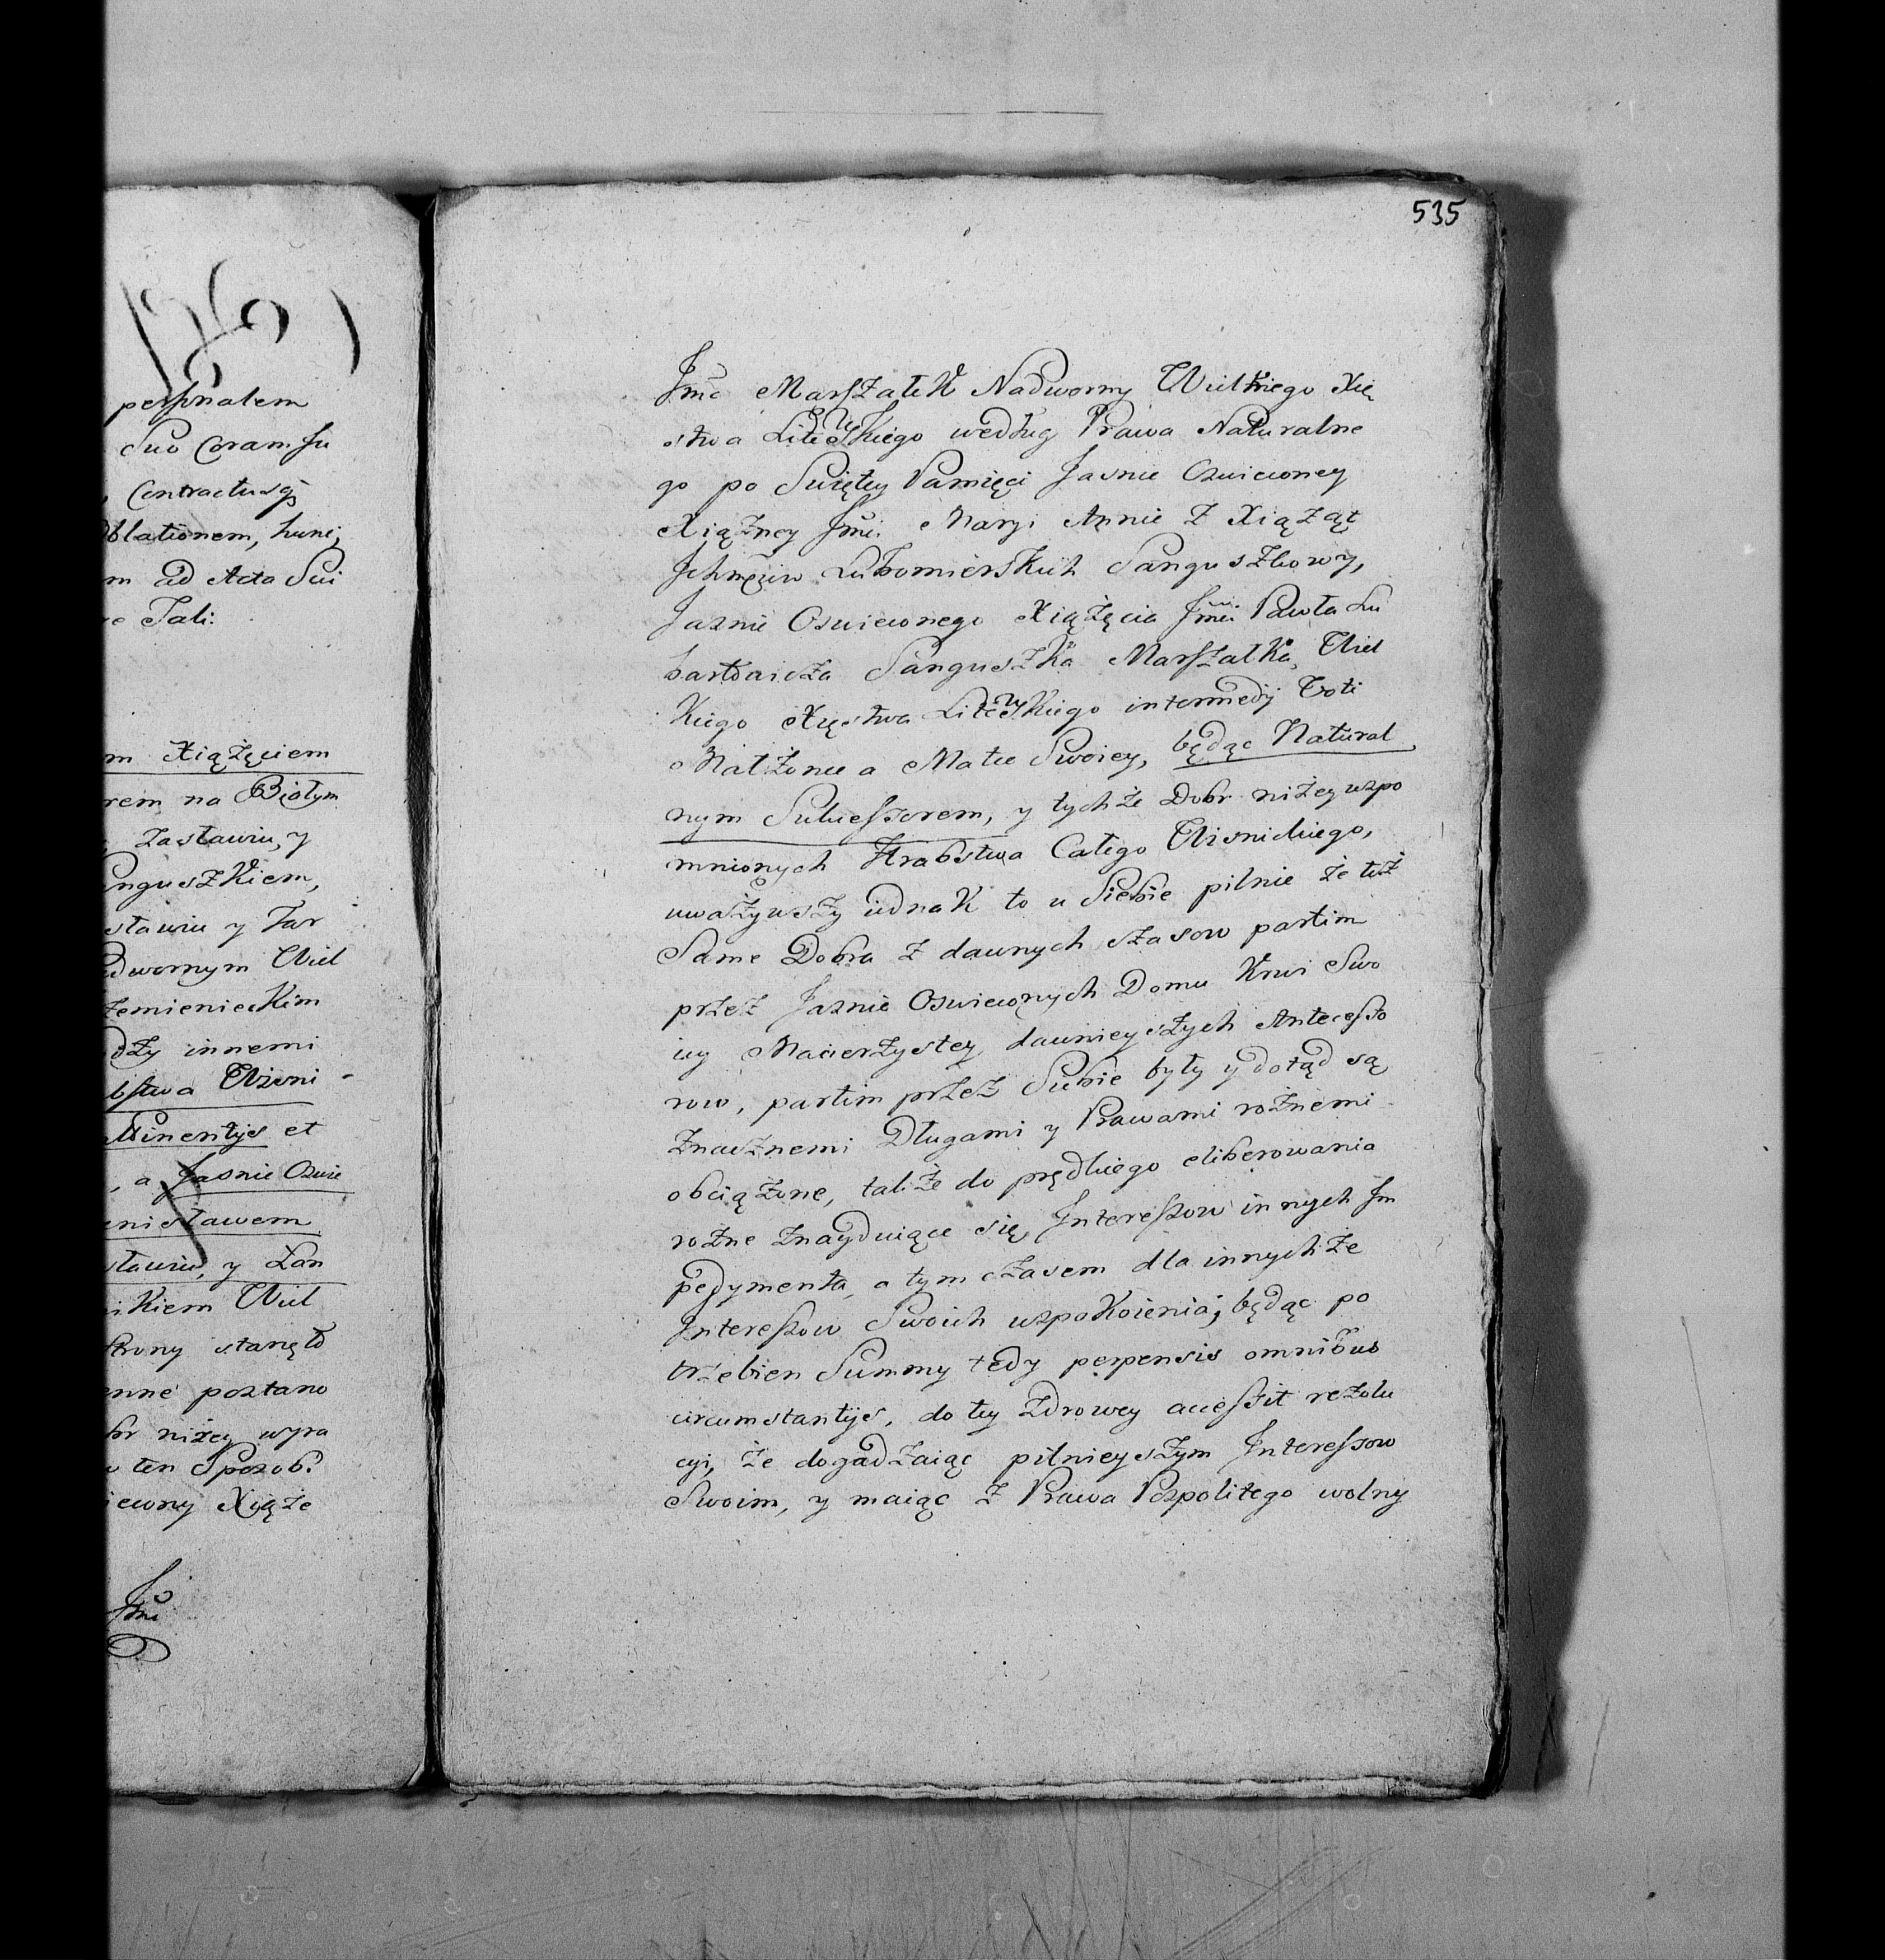 perssnalem
Suo Coram Ju
Contractusq;
Oblationem, hunc;
m ad Acta Sui
re Tali:
m Xiążęciem
rem na Białym
Zasławiu, y
nguszkiem,
sławiu y Tar
adwornym Wiel
zemienieckim
dzy innemi
bstwa Wisni
ttinentijs et
, a Jasnie Oswie
enisławem
sławiu, y Łan
nikiem Wiel
strony stanęło
enne postano
br niżey wyra
w ten Sposob?
iecony Xiąże
Jmć
535
Jmć Marszałek Nadworny Wielkiego Xię
stwa Litewskiego według Prawa Naturalne
go po Swiętey Pamięci Jasnie Oswieconey
Xiążney Jmci Maryi Annie z Xiążąt
Ichmciow Lubomierskich Sanguszkowy,
Jasnie Oswieconego Xiążęcia Jmci Pawła Lu
bartowicza Sanguszka Marszałka Wiel
kiego Xięstwa Litewskiego intermedij Voti
Małżonce a Matce Swoiey, będąc Natural
nym Sukcessorem, y tychże Dobr niżey wspo
mnionych Hrabstwa Całego Wisnickiego,
uważywszy iednak to u Siebie pilnie że też
Same Dobra z dawnych czasow partim
przez Jasnie Oswieconych Domu Krwi Swo
iey Macierzystey dawnieyszych Antecesso
row, partim przez Siebie były y dotąd są
znacznemi Długami y Prawami rożnemi
obciążone, takiże do prędkiego eliberowania
rożne znayduiące się Interessow innych Im
pedymenta, a tym czasem dla innychże
Interessow Swoich uspokoienia; będąc po
trzebien Summy tedy perpensis omnibus
circumstantijs, do tey zdrowey accessit rezolu
cyi, że dogadzaiąc pilnieyszym Interessow
Swoim, y maiąc z Prawa Pospolitego wolny